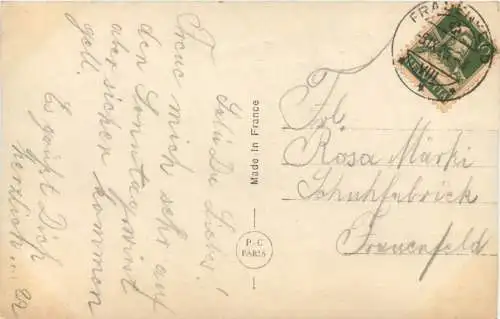 Salü Du Liebes!
Freue mich sehr auf
den Sonntag wirst
aber sicher kommen
gell.
Es grüßt Dich
herzlich
Made in France
P-C
PARIS
FRAUENFELD
Frl.
Rosa Märki
Schuhfabrick
Frauenfeld